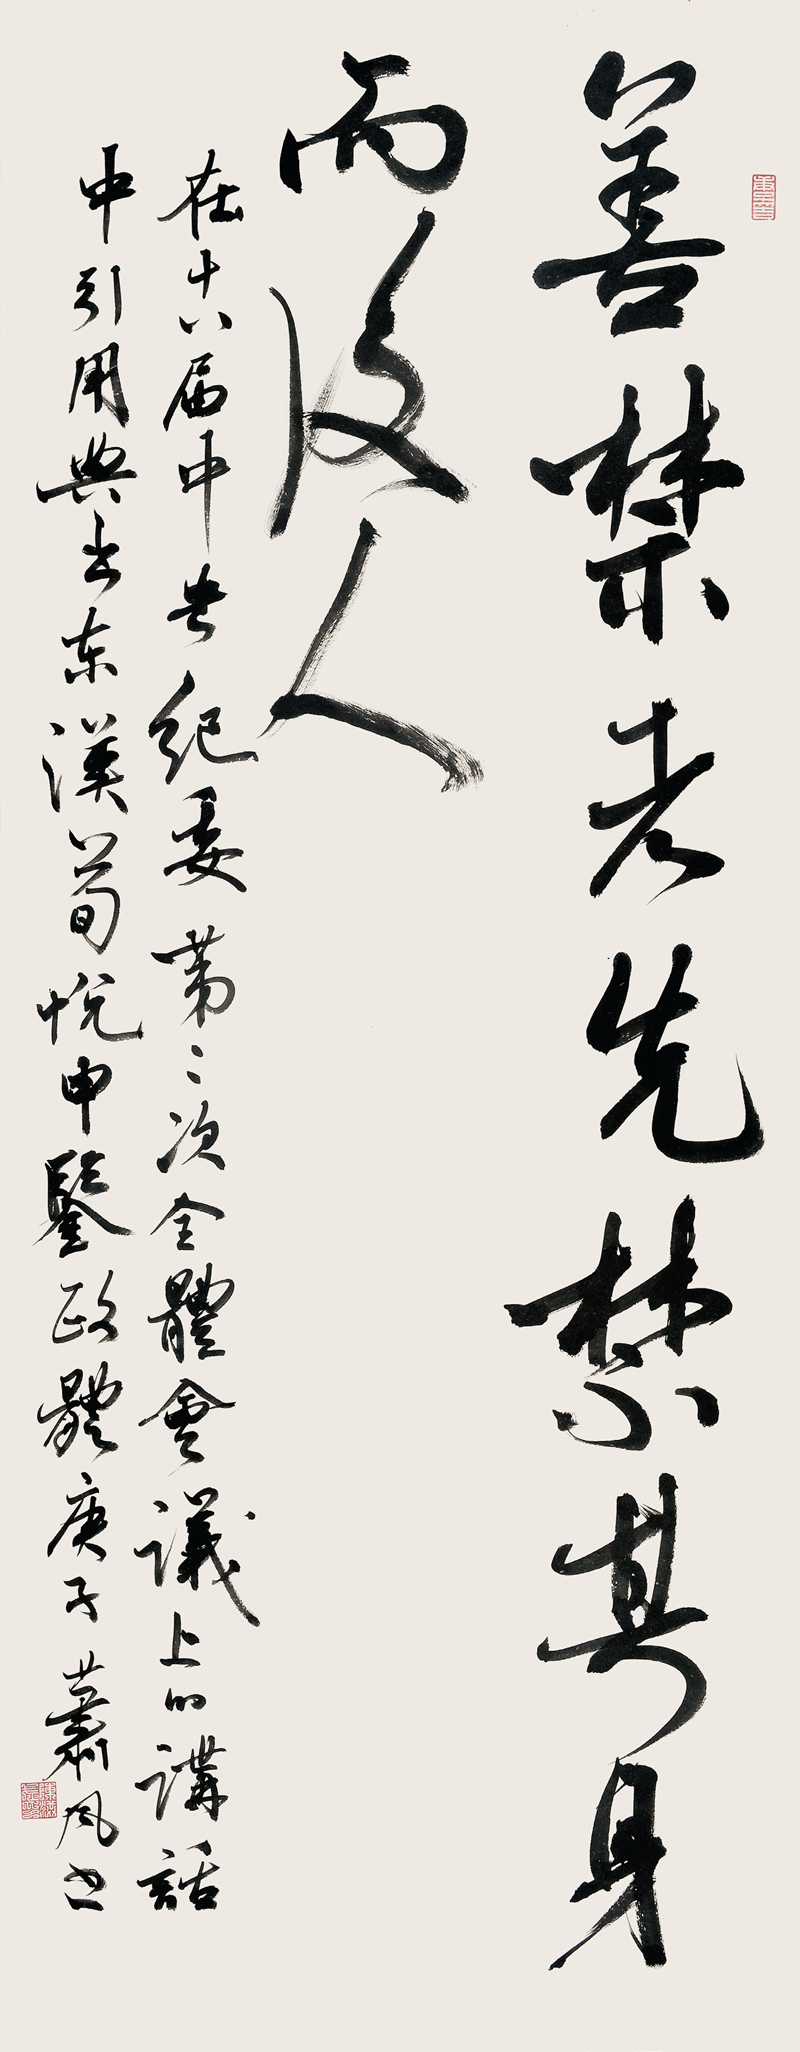 善禁者先禁其身
而後人
在十八届中央紀委第二次全體會議上的講話
中引用典出东漢荀悅申鑒政體庚子蕭风书